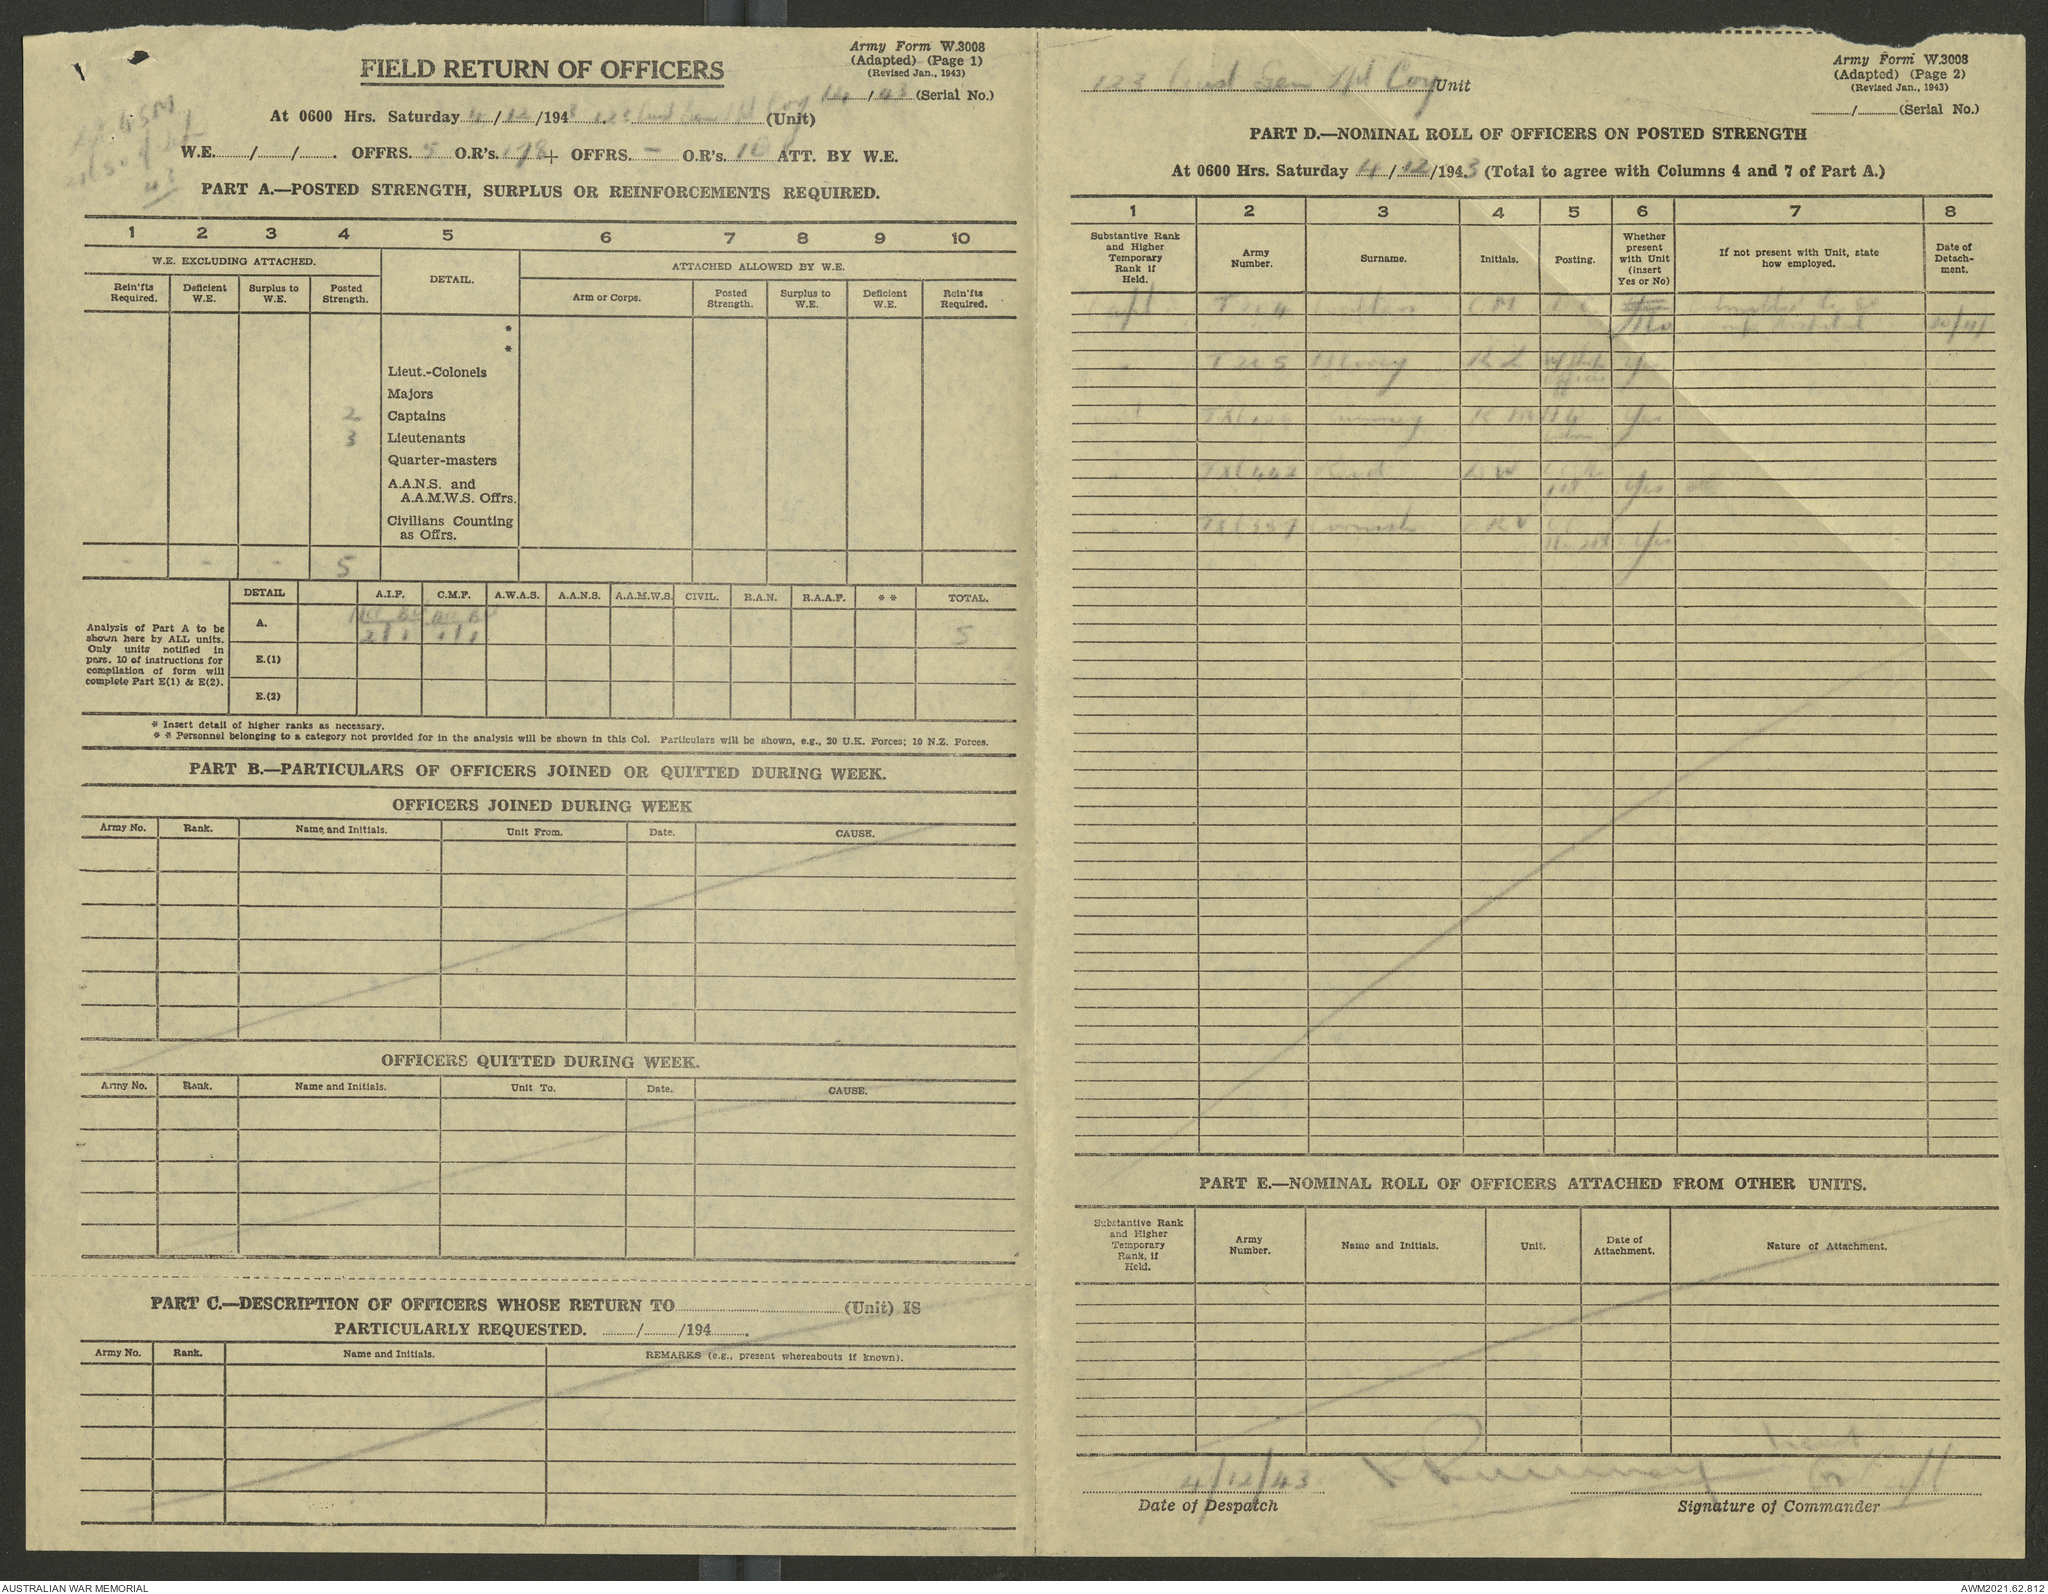 Army Form W.3008
(Adapted) (Page 1)
(Revised Jan., 1943)
FIELD RETURN OF OFFICERS
14/43 (Serial No.)
At 0600 Hrs. Saturday 4/12/1943. 123 Aust Gen Tpt Coy (Unit)
W.E......../......./........ OFFRS. 5 O.R's. 178 + OFFRS. - O.R's. ATT. BY W.E.
PART A.—POSTED STRENGTH, SURPLUS OR REINFORCEMENTS REQUIRED.
1 2 3 4 5 6 7 8 9 10
W.E. EXCLUDING ATTACHED. DETAIL. ATTACHED ALLOWED BY W.E.
Rein'fts Required. Deficient W.E. Surplus to W.E. Posted Strength. Arm or Corps. Posted Strength. Surplus to W.E. Deficient W.E. Rein'fts Required.
*
*
Lieut.-Colonels
Majors
2 Captains
3 Lieutenants
Quarter-masters
A.A.N.S. and
A.A.M.W.S. Offrs.
Civilians Counting
as Offrs.
- - - 5
DETAIL A.I.F. C.M.F. A.W.A.S. A.A.N.S. A.A.M.W.S. CIVIL. R.A.N. R.A.A.F. * * TOTAL.
Analysis of Part A to be
shown here by ALL units.
Only units notified in
para. 10 of instructions for
compilation of form will
complete Part E(1) & E(2).
A. 2 1 1 1 5
E.(1)
E.(2)
* Insert detail of higher ranks as necessary.
* * Personnel belonging to a category not provided for in the analysis will be shown in this Col. Particulars will be shown, e.g., 20 U.K. Forces; 10 N.Z. Forces.
PART B.—PARTICULARS OF OFFICERS JOINED OR QUITTED DURING WEEK.
OFFICERS JOINED DURING WEEK
Army No. Rank. Name and Initials. Unit From. Date. CAUSE.
OFFICERS QUITTED DURING WEEK.
Army No. Rank. Name and Initials. Unit To. Date. CAUSE.
PART C.—DESCRIPTION OF OFFICERS WHOSE RETURN TO.................... (Unit) IS
PARTICULARLY REQUESTED. ........./........./194.........
Army No. Rank. Name and Initials. REMARKS (e.g., present whereabouts if known).
Army Form W.3008
(Adapted) (Page 2)
(Revised Jan., 1943)
123 Aust Gen Tpt Coy Unit
........./......... (Serial No.)
PART D.—NOMINAL ROLL OF OFFICERS ON POSTED STRENGTH
At 0600 Hrs. Saturday 4/12/1943 (Total to agree with Columns 4 and 7 of Part A.)
1 2 3 4 5 6 7 8
Substantive Rank and Higher Temporary Rank if Held. Army Number. Surname. Initials. Posting. Whether present with Unit (insert Yes or No) If not present with Unit, state how employed. Date of Detachment.
Capt No
R L Yes
Yes
Yes
R V Yes
PART E.—NOMINAL ROLL OF OFFICERS ATTACHED FROM OTHER UNITS.
Substantive Rank and Higher Temporary Rank, if Held. Army Number. Name and Initials. Unit. Date of Attachment. Nature of Attachment.
4/12/43 Lieut
Date of Despatch Signature of Commander
AUSTRALIAN WAR MEMORIAL AWM2021.62.812